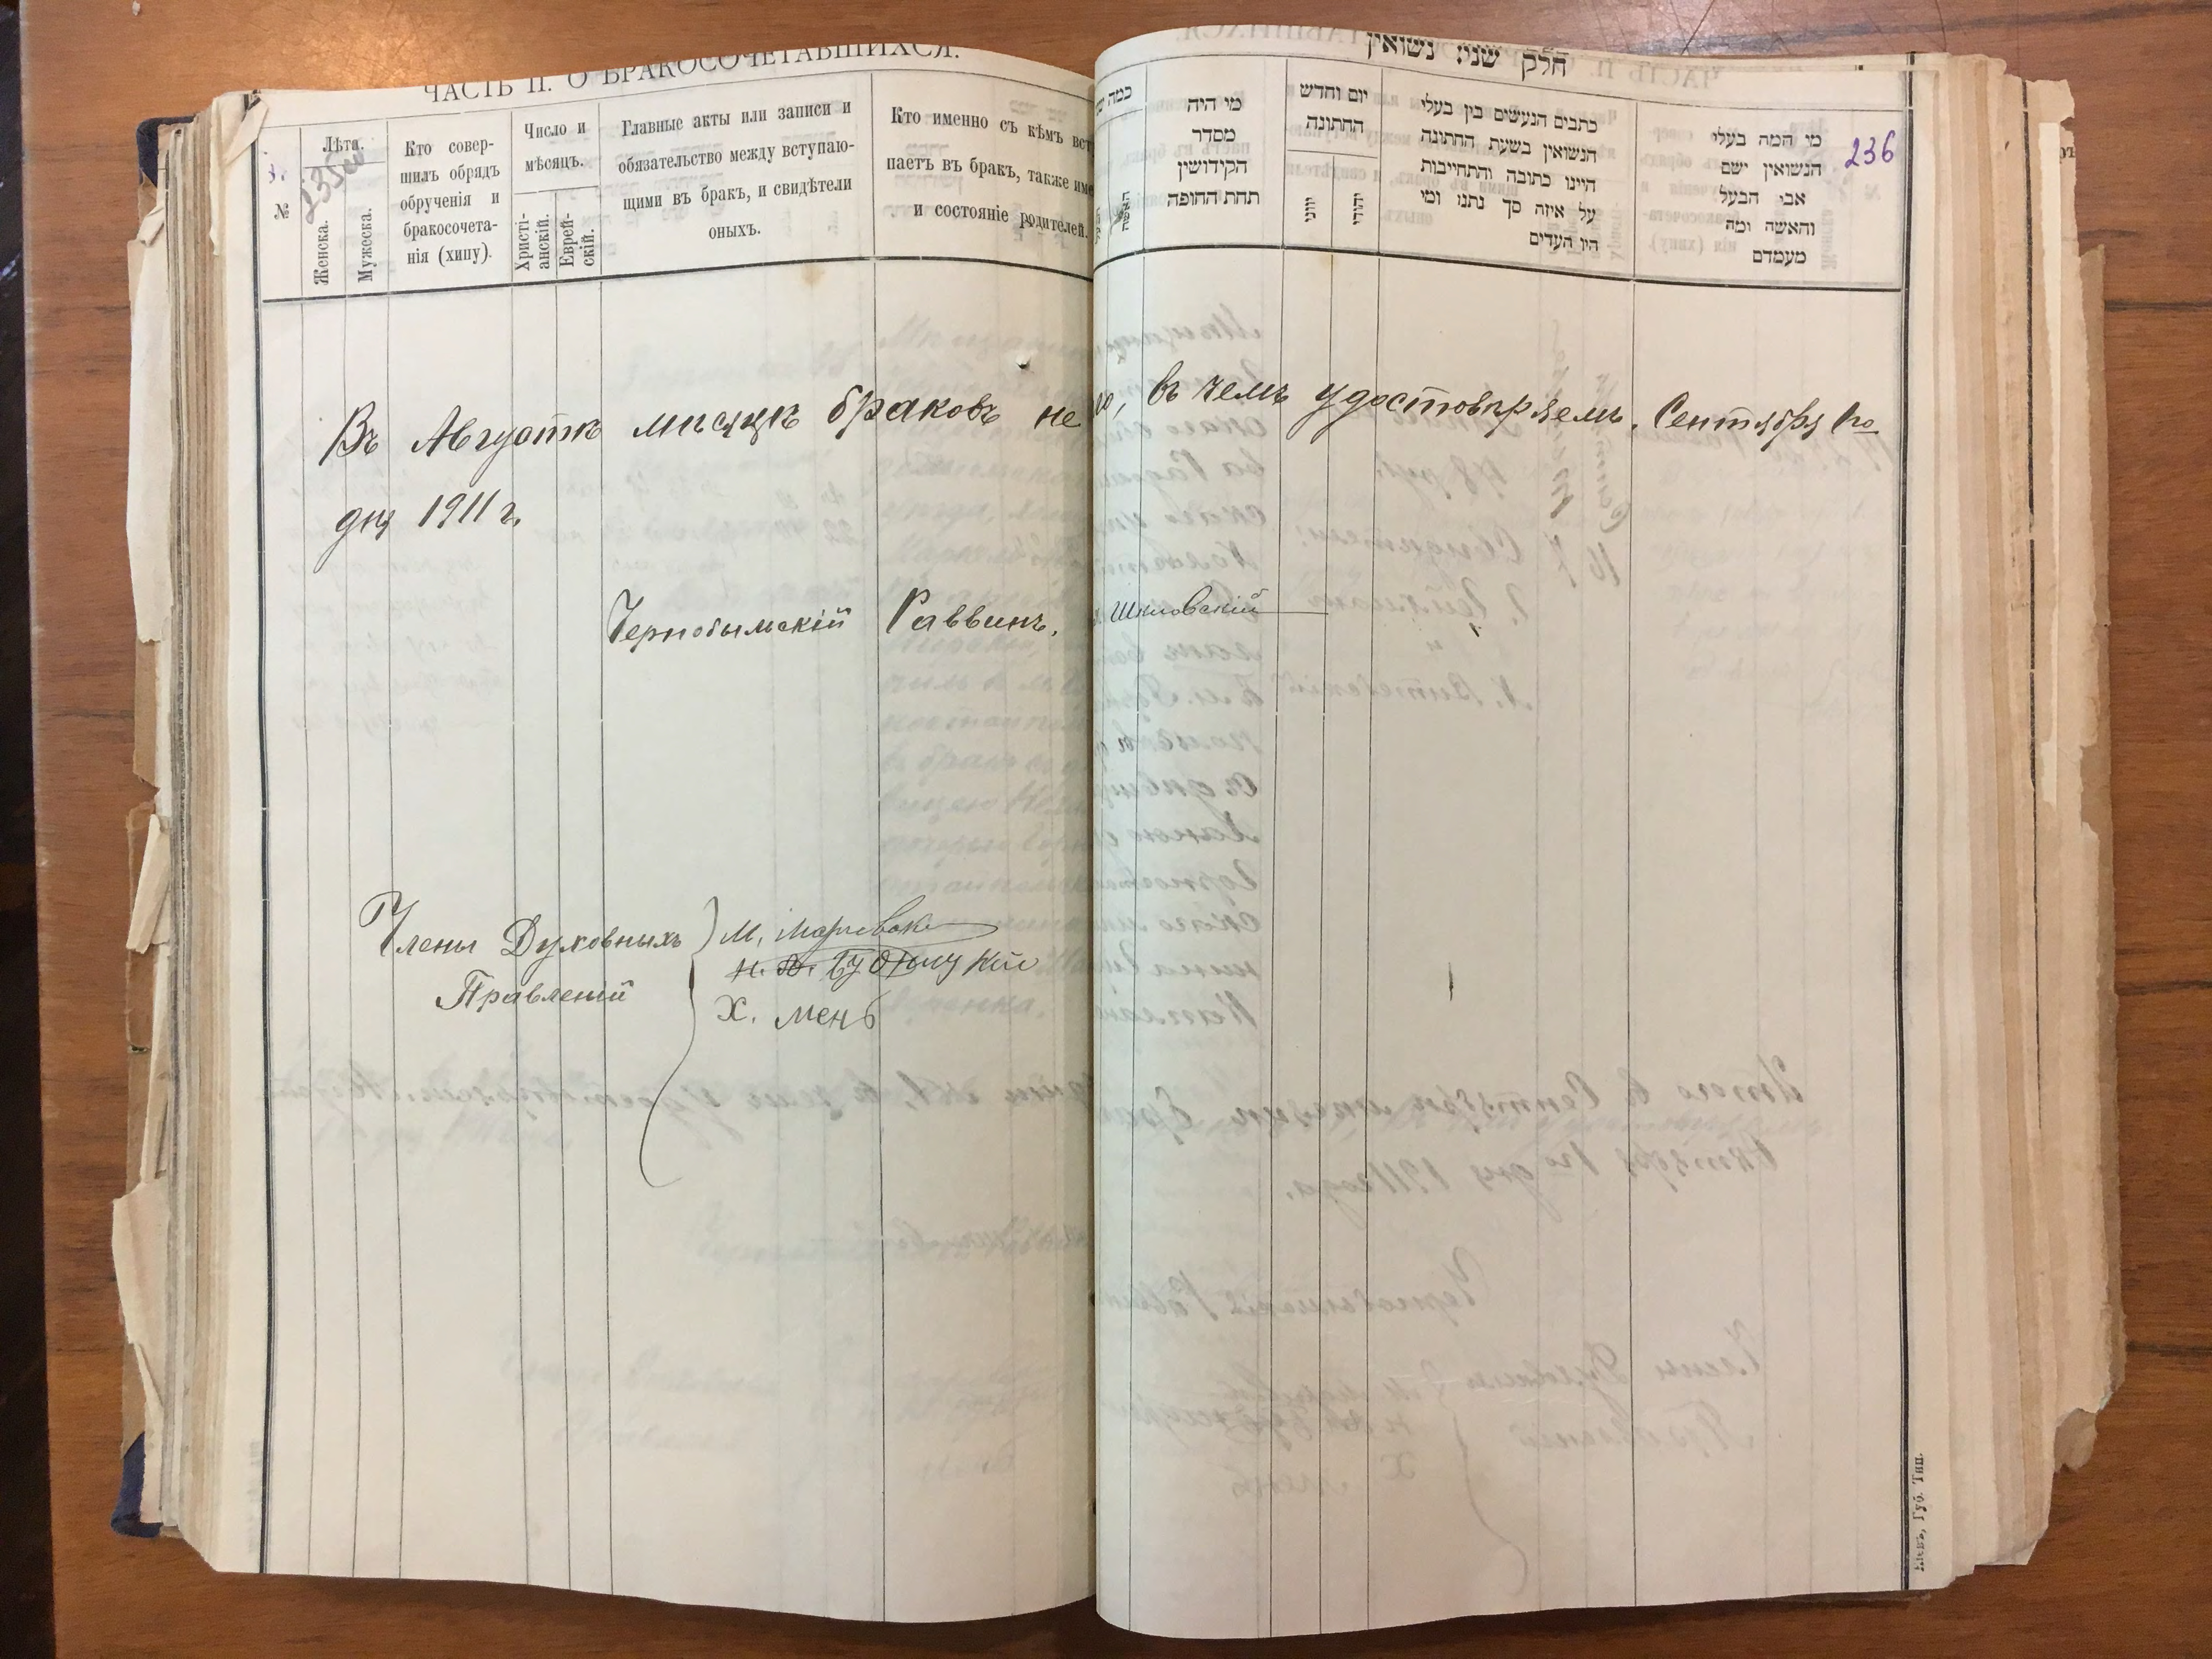 ЧАСТЬ II. О БРАКОСОЧЕТАВШИХСЯ.
№
Лѣта.
Женска.
Мужеска.
Кто совер-
шилъ обрядъ
обрученія и
бракосочета-
нія (хипу).
Число и
мѣсяцъ.
Христі-
анскій.
Еврей-
скій.
Главные акты или записи и
обязательство между вступаю-
щими въ бракъ, и свидѣтели
оныхъ.
Кто именно съ кѣмъ вст
паетъ въ бракъ, также име
и состояніе родителей.
חלק שני נשואין
כמה
האשה
מי היה
מסדר
הקידושין
תחת החופה
יום וחדש
החתונה
יווני
יהודי
כתבים הנעשים בין בעלי
הנשואין בשעת החתונה
היינו כתובה והתחייבות
על איזה סך נתנו ומי
היו העדים
מי המה בעלי
הנשואין ושם
אבי הבעל
והאשה ומה
מעמדם
236
Въ Августѣ мѣсяцѣ браковъ не
, въ чемъ удостовѣряемъ. Сентября 1го
дня 1911 г.
Чернобыльскій Раввинъ,
Шкловскій
Члены Духовныхъ
Правленій
М.
Х. Мень
Губ. Тип.